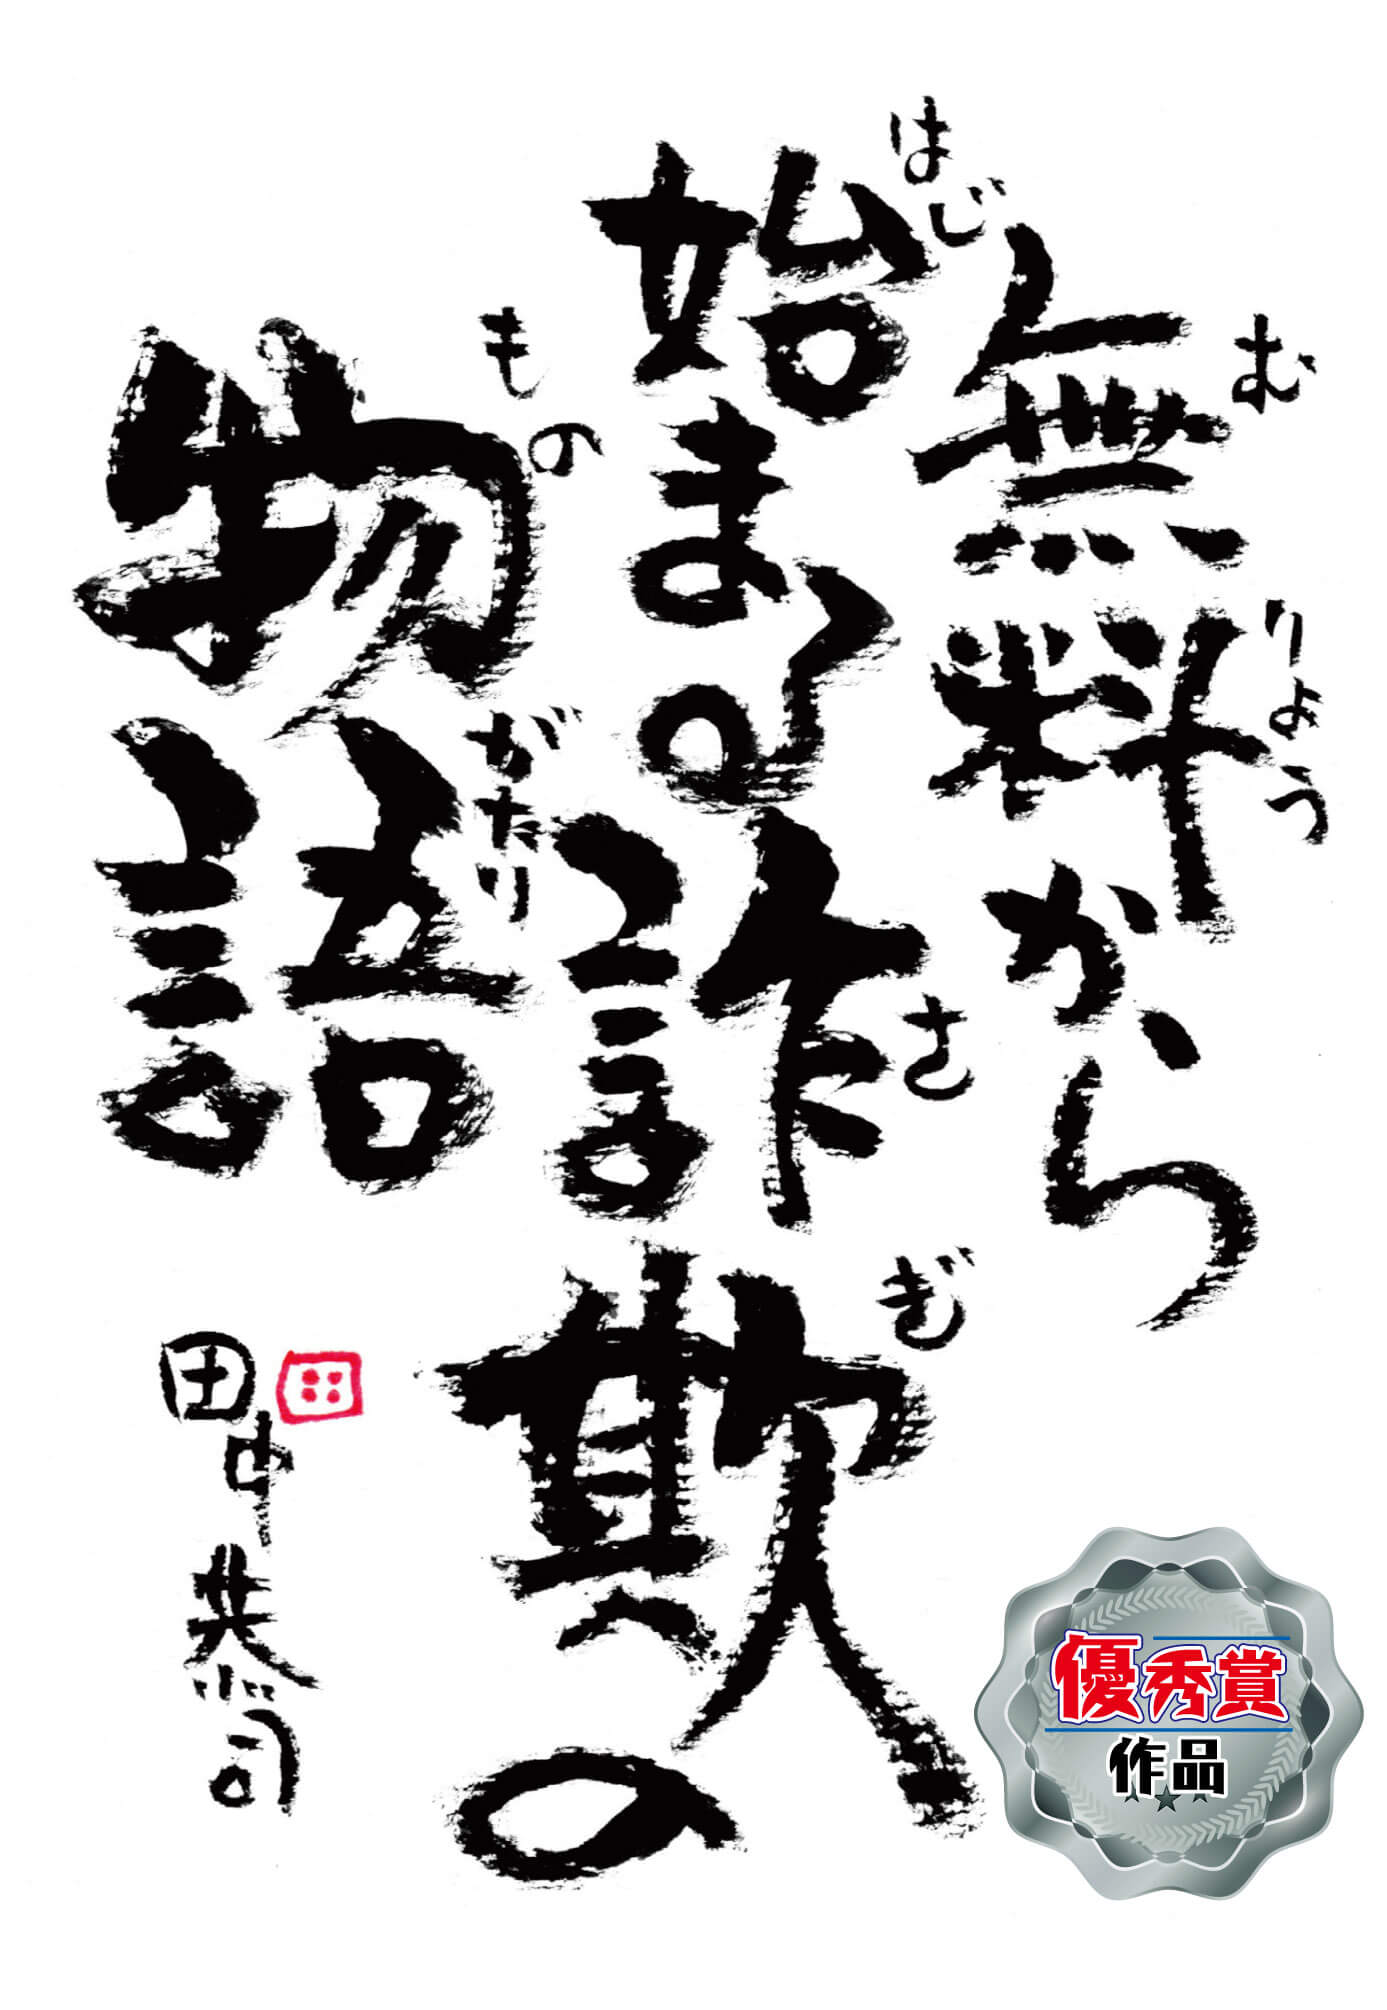 無料から
むりょう
始まる詐欺の
はじ
さぎ
物語
ものがたり
田中恭司
優秀賞
作品